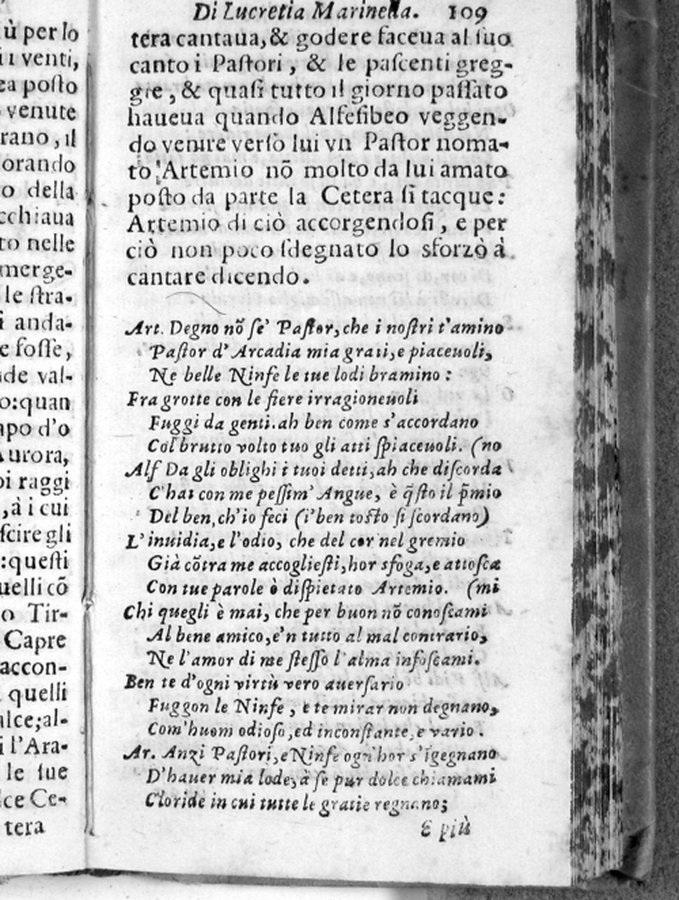 ù per lo
i venti,
ea posto
venute
rano, il
orando
o della
cchiaua
to nelle
merge-
le ſtra-
i anda-
e foſſe,
de val-
o:quan
apo d'o
Aurora,
oi raggi
,à i cui
ſcire gli
:queſti
uelli cõ
o Tir-
Capre
accon-
quelli
alce;al-
i l'Ara-
le ſue
lce Ce-
tera
Di Lucretia Marinella. 109
tera cantaua,& godere faceua al ſuo
canto i Paſtori, & le paſcenti greg-
gie, & quaſi tutto il giorno paſſato
haueua quando Alfeſibeo veggen-
do venire verſo lui vn Paſtor noma-
to Artemio nõ molto da lui amato
poſto da parte la Cetera ſi tacque:
Artemio di ciò accorgendoſi, e per
ciò non poco ſdegnato lo sforzò à
cantare dicendo.
Art. Degno nõ ſe' Paſtor, che i noſtri t'amino
Paſtor d'Arcadia mia grati, e piaceuoli,
Ne belle Ninfe le tue lodi bramino:
Fra grotte con le fiere irragioneuoli
Fuggi da genti.ah ben come s'accordano
Col brutto volto tuo gli atti ſpiaceuoli. (no
Alf Da gli oblighi i tuoi detti, ah che diſcorda
C'hai con me peſſim' Angue, è q̃ſto il p̃mio
Del ben, ch'io feci (i'ben toſto ſi ſcordano)
L'inuidia, e l'odio, che del cor nel gremio
Già cõtra me accoglieſti, hor sfoga, e attoſca
Con tue parole ò diſpietato Artemio. (mi
Chi quegli è mai, che per buon nõ conoſcami
Al bene amico, e'n tutto al mal contrario,
Ne l'amor di me ſteſſo l'alma infoſcami.
Ben te d'ogni virtù vero auerſario
Fuggon le Ninfe, e te mirar non degnano,
Com'huom odioſo, ed inconſtante, e vario.
Ar. Anzi Paſtori, e Ninfe ogn'hor s'ĩgegnano
D'hauer mia lode, à ſe pur dolce chiamami
Cloride in cui tutte le gratie regnano;
E più